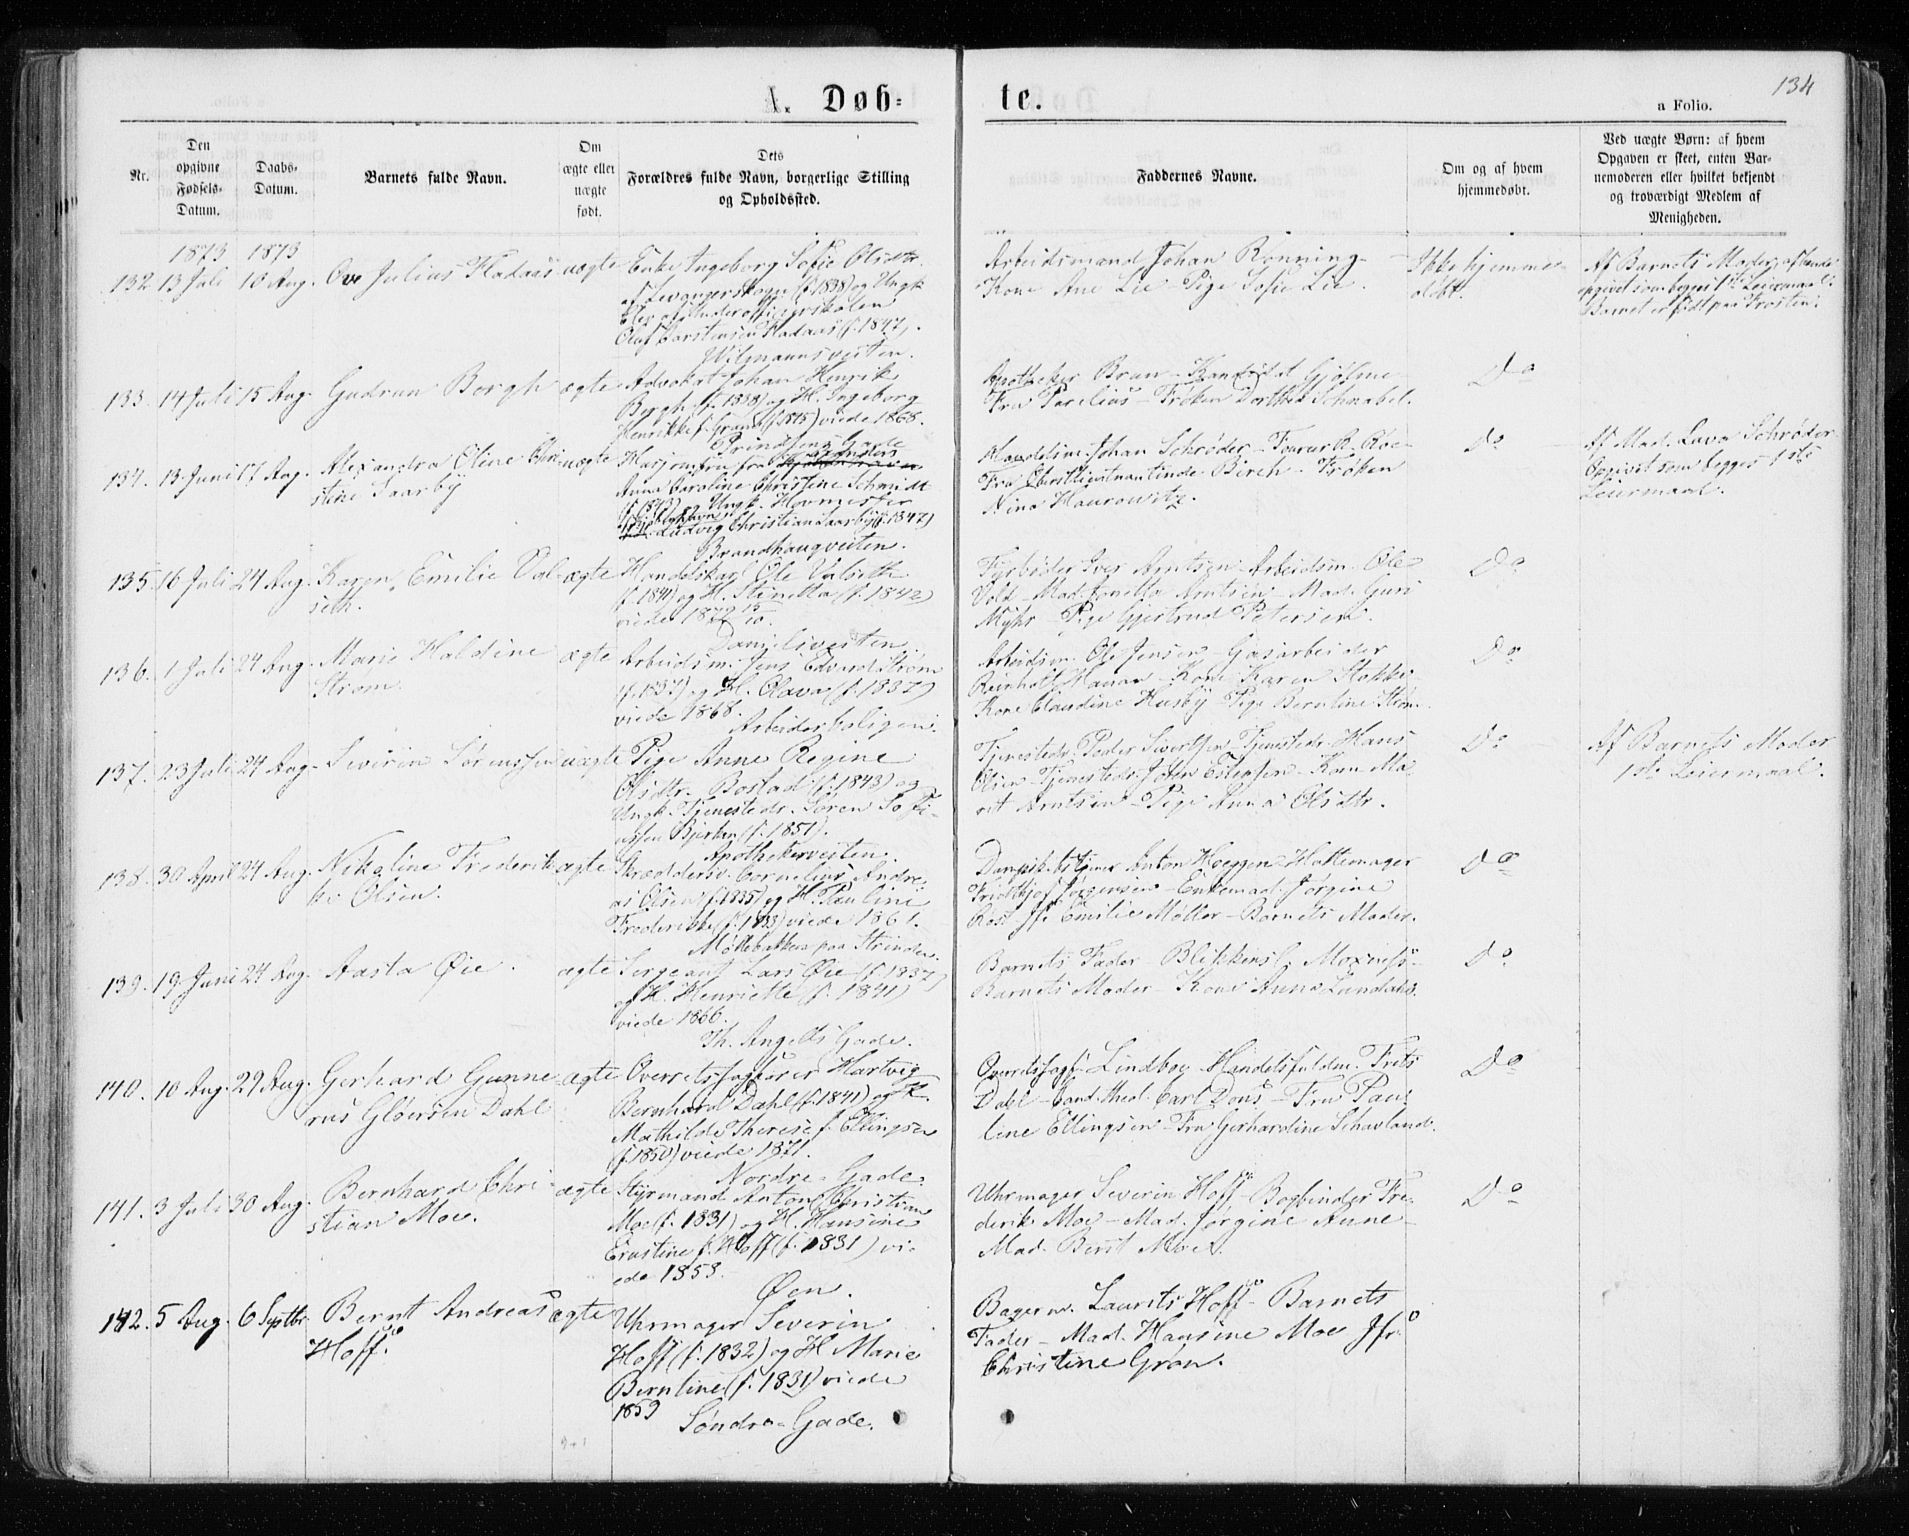 134
A. Døb-
te.
a Folio.
Nr.
Den
opgivne
Fødsels-
Datum.
Daabs-
Datum.
Barnets fulde Navn.
Om
ægte eller
uægte
født.
Dets
Forældres fulde Navn, borgerlige Stilling
og Opholdssted.
Faddernes Navne.
Om og af hvem
hjemmedøbt.
Ved uægte Børn: af hvem
Opgaven er skeet, enten Bar-
nemoderen eller hvilket bekjendt
og troværdigt Medlem af
Menigheden.
1873 1873
132. 13 Juli 10 Aug. Ove Julius Hadaas uægte
Enke Ingeborg Sofie Olsdtr.
af Levangerskogn (f. 1838) og Ungk.
Elev af Underofficierskolen
Oluf Carstensen Hadaas (f. 1847).
Wilmannsveiten.
Arbeidsmand Johan Rønning-
Kone Ane Lie Pige Sofie Lie.
Ikke hjemme-
døbt.
Af Barnets Moder,
opgivet som begges 1ste Leiermaal.
Barnet er født paa Frosten.
133. 14 Juli 15 Aug. Gudrun Borgh ægte
Advokat Johan Henrik
Borgh (f. 1838) og H. Ingeborg
Henrikke f. viede 1868.
Prindsens Gade
Apotheker Brun - Kandidat Gjølme-
Fru Parelius - Frøken Dorthea Schnabel.
Do
134. 13 Juni 17 Aug. Alexandra Oline Chri- uægte
stine Saarby
Husjomfru fra
Anna Caroline Christine Schmidt
og Ungk. Hovmester
Ludvig Christian Saarby (f. 1847)
Brandhaugveiten.
Handelsm. Johan Schrøder - R. Roe-
Fru Oberstlieutnantinde Birch - Frøken
Nina Haurowitz.
Do
Af Mad. Lava Schrøder
Opgivet som begges 1ste
Leiermaal.
135. 16 Juli 24 Aug. Karen Emilie Val- ægte
seth.
Handelskarl Ole Valseth
(f. 1841) og H. Stinetta (f. 1842)
viede 1872 15/10.
Danielsveiten.
Fyrbøder Iver Arntsen - Arbeidsm. Ole
Vold - Mad. Arntsen - Mad. Guri
Myhr - Pige Gjertrud Petersen.
Do
136. 1 Juli 24 Aug. Marie Haldine ægte
Strøm.
Arbeidsm. Jens Edvard Strøm
(f. 1837) og H. Olava (f. 1837)
viede 1868.
Arbeiderboligen.
Arbeidsm. Ole Jensen - Gasarbeider
Reinholt - Kone Karen
Kone Claudine Husby - Pige Berntine Strøm.
Do
137. 23 Juli 24 Aug. Sevirin Sørenssen uægte
Pige Anne Regine
Olsdtr. Bostad (f. 1843) og
Ungk. Tjenestedr. Søren
(f. 1851).
Apothekerveiten.
Tjenestedr. Peder Sivertsen Tjenestedr. Hans
Olsen - Tjenestedr. John Estensen - Kone Ma-
rit Arntsen - Pige Anna Olsdtr.
Do
Af Barnets Moder
1ste Leiermaal.
138. 30 April 24 Aug. Nikoline Frederik- ægte
ke Olsen.
Skræddersv. Cornelius Andre-
as Olsen (f. 1835) og H. Pauline
Frederikke (f. 1833) viede 1861.
Møllebakken paa Strinden.
Anton Hoeggen - Hattemager
Fridthjof Jørgensen - Enkemad. Jørgine
Ros Jfr. Emilie Møller - Barnets Moder.
Do
139. 19 Juni 24 Aug. Aasta Øie. ægte
Sergeant Lars Øie (f. 1837)
og H. Henriette (f. 1841)
viede 1866.
Th. Angells Gade.
Barnets Fader - Blikkensl. Moxness-
Barnets Moder - Kone Anna Lundahl.
Do
140. 10 Aug. 29 Aug. Gerhard Gunne- ægte
rus Gløersen Dahl
Overretssagfører Hartvig
Bernhard Dahl (f. 1841) og H.
Mathilde Therese f. Ellingsen
(f. 1850) viede 1871.
Nordre Gade.
Overretssagf. Lindboe - Handelsfuldm. Frits
Dahl - Cand. theol. Carl Dons - Fru Pau-
line Ellingsen - Fru Gerhardine Schavland.
Do
141. 3 Juli 30 Aug. Bernhard Chri- ægte
stian Moe.
Styrmand Anton Christian
Moe (f. 1831) og H. Hansine
Ernstine f. Hoff (f. 1831) vi-
ede 1853.
Øen.
Uhrmager Severin Hoff - Bogbinder Fre-
derik Moe - Mad. Jørgine Aune -
Mad. Berit Moe.
Do
142. 5 Aug. 6 Septbr. Bernt Andreas ægte
Hoff.
Uhrmager Severin
Hoff (f. 1832) og H. Marie
Berntine (f. 1831) viede
1859
Søndre Gade.
Bagersv. Laurits Hoff - Barnets
Fader - Mad. Hansine Moe Jfr.
Christine Grøn.